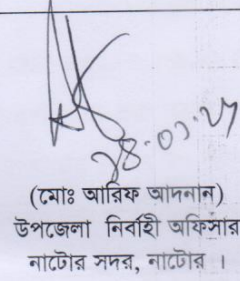 (মোঃ আরিফ আদনান)
উপজেলা নির্বাহী অফিসার
নাটোর সদর, নাটোর ।